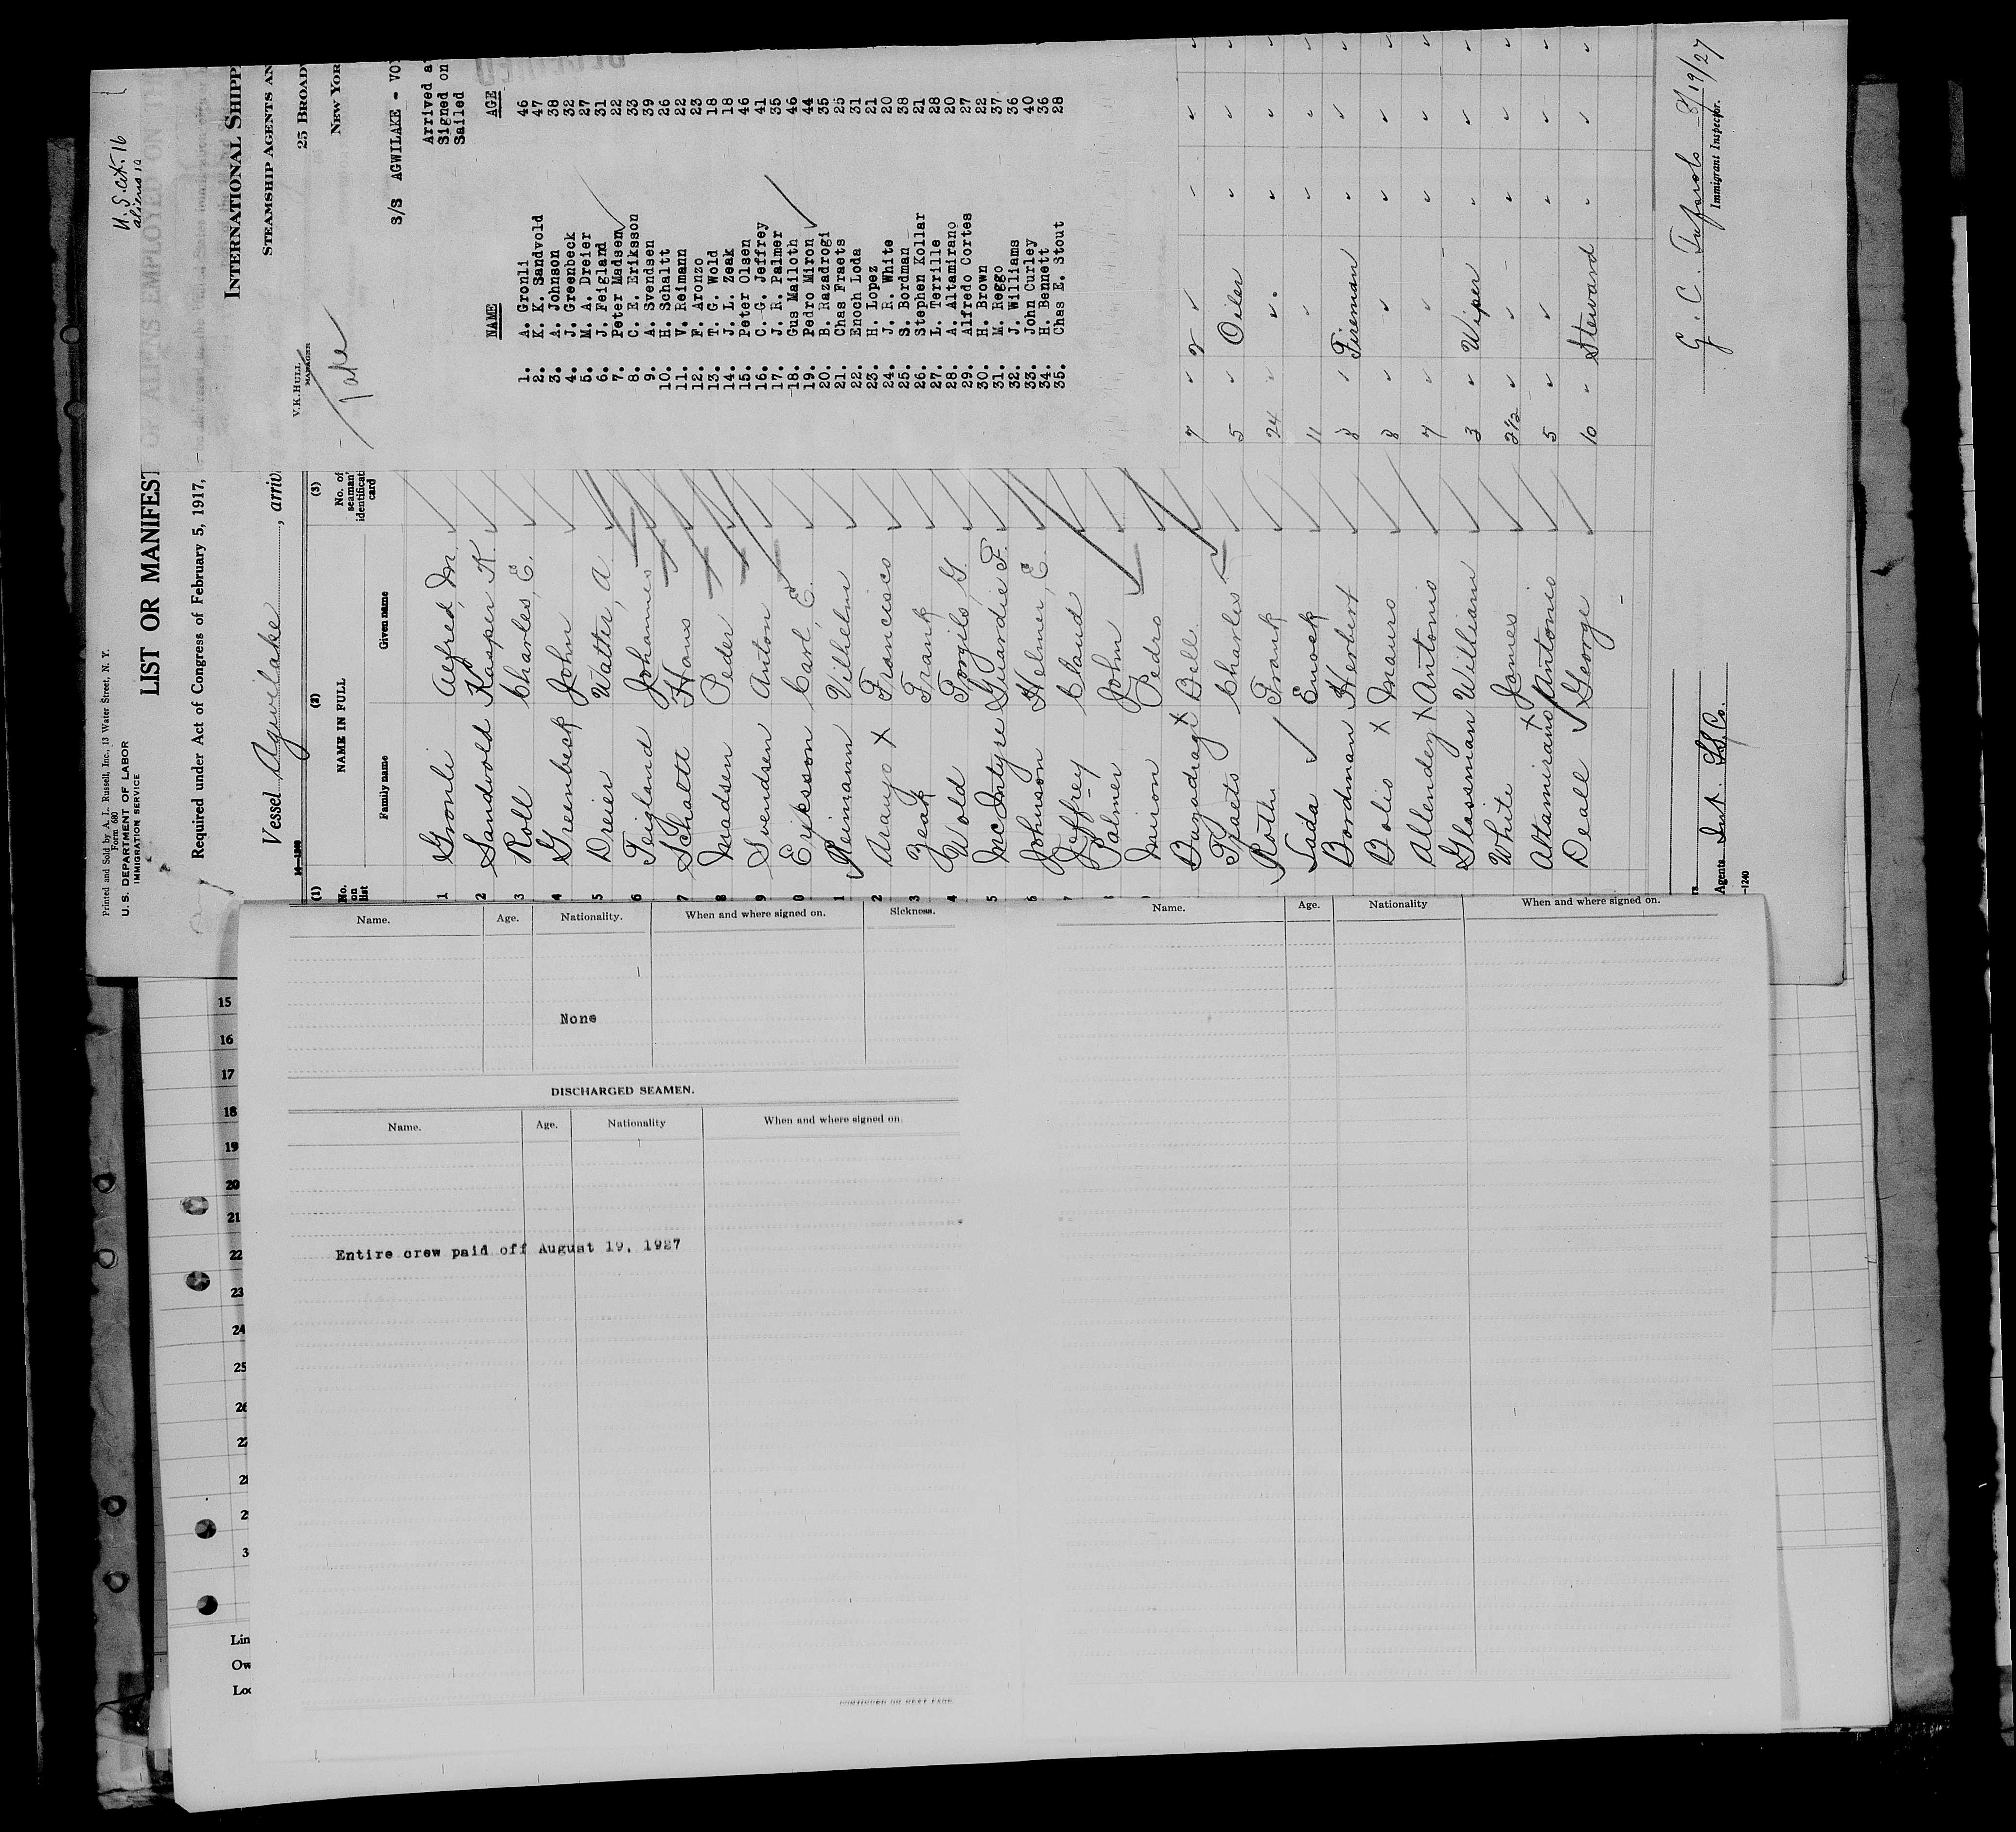 Printed and Sold by A. L. Russell, Inc., 13 Water Street, N. Y.
Form 680
U. S. DEPARTMENT OF LABOR
IMMIGRATION SERVICE
U. S. cit. 16
aliens
LIST OR MANIFEST OF ALIENS EMPLOYED ON THE
Required under Act of Congress of February 5, 1917,
Vessel Agwilake, arriv
(1) (2) (3)
No. on list
NAME IN FULL
No. of seaman's identificati card
Family name Given name
1 Gronli Alfred, M.
2 Sandvold Kasper K.
3 Roll Charles, E.
4 Greenbeck John
5 Dreier Walter, A
6 Teigland Johannes
7 Schaltt Hans
8 Madsen Peder
9 Svendsen Anton
0 Eriksson Carl, E.
1 Reimann Vilhelm
2 Araujo X Francisco
3 Zeak Frank
4 Wold Torgils, G.
5 McIntyre Guardie F.
6 Johnson Helmer, E.
7 Jeffrey Claud
8 Palmer John
Miron Pedro
Buzadragi X Bell.
Fraets Charles
Roth Frank
Lada Enock
Bordman Herbert
Bolio X Mauro
Allendez X Antonio
Glassman William
White James
Altamirano X Antonio
Deall George
INTERNATIONAL SHIPP
STEAMSHIP AGENTS AN
25 BROADW
NEW YOR
V. K. HULL
MANAGER
Take
S/S AGWILAKE - VO
Arrived a
Signed on
Sailed
NAME AGE
1. A. Gronli 46
2. K. K. Sandvold 47
3. A. Johnson 38
4. J. Greenbeck 32
5. M. A. Dreier 27
6. J. Feigland 31
7. Peter Madsen 22
8. C. E. Eriksson 33
9. A. Svendsen 39
10. H. Schaltt 26
11. V. Reimann 22
12. F. Aronzo 23
13. T. G. Wold 18
14. J. L. Zeak 18
15. Peter Olsen 46
16. C. G. Jeffrey 41
17. J. R. Palmer 35
18. Gus Mailoth 46
19. Pedro Miron 44
20. B. Razadrogi 35
21. Chas Fraets 25
22. Enoch Loda 31
23. H. Lopez 21
24. J. R. White 20
25. S. Bordman 38
26. Stephen Kollar 21
27. L. Terrille 28
28. A. Altamirano 20
29. Alfredo Cortes 27
30. H. Brown 22
31. M. Reggo 37
32. J. Williams 36
33. John Curley 40
34. H. Bennett 36
35. Chas E. Stout 28
7
5 Oiler
24
11
8 Fireman
8
7
3 Wiper
2½
5
10 Steward
8/19/27
Immigrant Inspector.
Agents Int. S.S. Co.
-1240
Name. Age. Nationality. When and where signed on. Sickness.
None
DISCHARGED SEAMEN.
Name. Age. Nationality When and where signed on.
Entire crew paid off August 19, 1927
CONTINUED ON NEXT PAGE
Name. Age. Nationality When and where signed on.
15
16
17
18
19
20
21
22
23
24
25
26
27
2
2
3
Lin
Ow
Loc